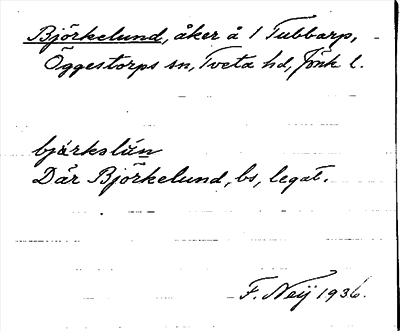 Björkelund, åker å 1 Tubbarp,
Öggestorps sn, Tveta hd, Jönk l.
bjärkslún
Där Björkelund, bs, legat.
F. Neij 1936.